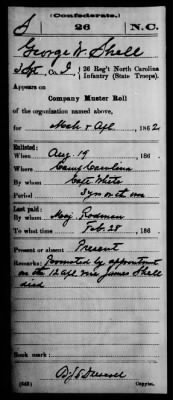 (Confederate.)
S 26 N.C.
George W. Shell
3 Sgt, Co. I, 26 Reg't North Carolina
Infantry (State Troops).
Appears on
Company Muster Roll
of the organization named above,
for Mch & Apl, 1862
Enlisted:
When Aug. 19, 186
Where Camp Carolina
By whom Capt. White
Period 3 yrs or the war
Last paid:
By whom Maj. Rodman
To what time Feb. 28, 186
Present or absent Present
Remarks: Promoted by appointment
on the 12 Apl vice James Shell
died
Book mark:
(642) Copyist.